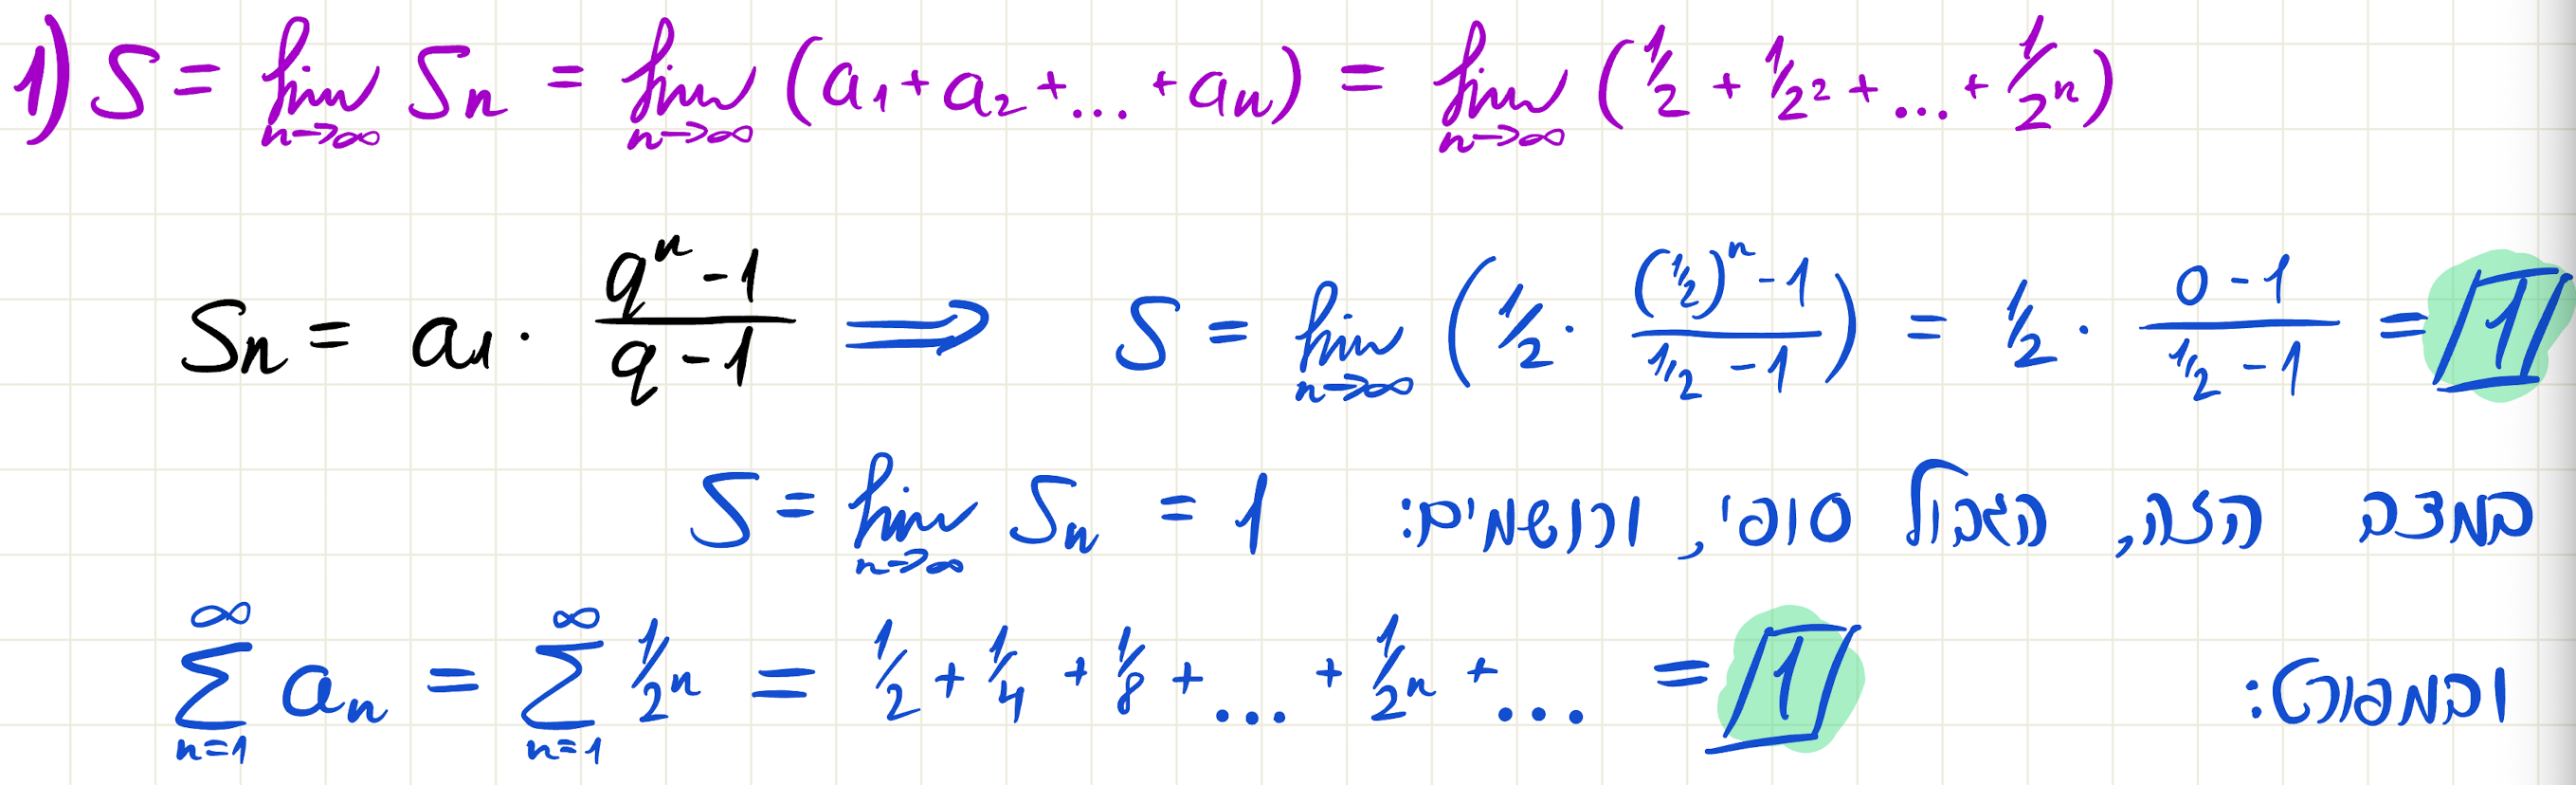 1) S = lim n→∞ Sn = lim n→∞ (a₁+a₂+...+an) = lim n→∞ (1/2 + 1/2² + ... + 1/2ⁿ)
Sn = a₁ · (qⁿ-1)/(q-1) ⟹ S = lim n→∞ (1/2 · ((1/2)ⁿ-1)/(1/2-1)) = 1/2 · (0-1)/(1/2-1) = 1
במצב הזה, הגבול סופי, ורושמים: S = lim n→∞ Sn = 1
ובמפורט: ∞ Σ n=1 an = ∞ Σ n=1 1/2ⁿ = 1/2 + 1/4 + 1/8 + ... + 1/2ⁿ + ... = 1